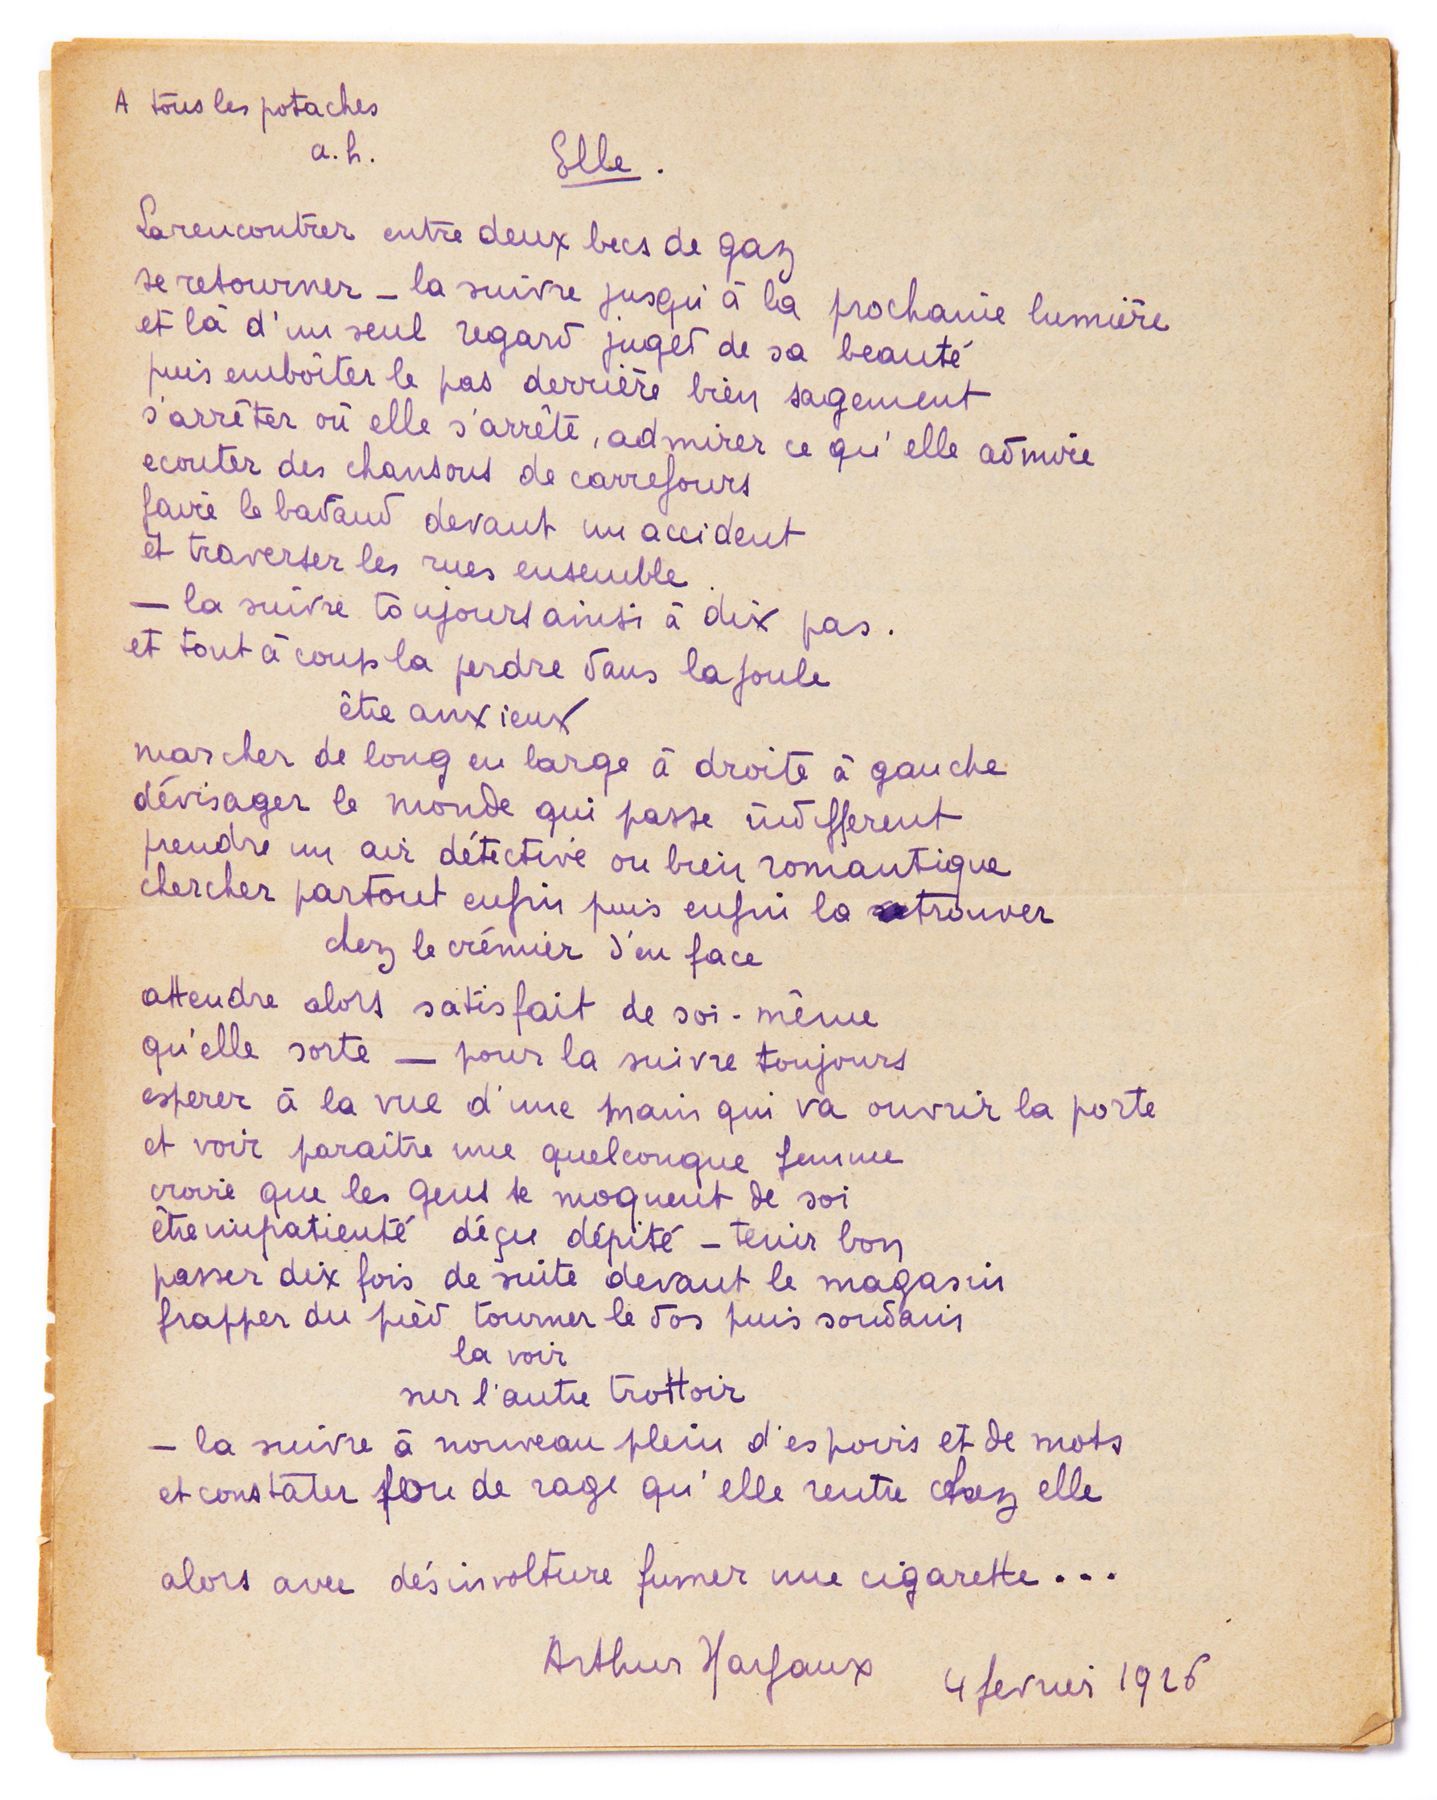 A tous les potaches
a.h.
Elle.
La rencontrer entre deux becs de gaz
se retourner — la suivre jusqu'à la prochaine lumière
et là d'un seul regard juger de sa beauté
puis emboîter le pas derrière bien sagement
s'arrêter où elle s'arrête, admirer ce qu'elle admire
ecouter des chansons de carrefours
faire le badaud devant un accident
et traverser les rues ensemble.
— la suivre toujours ainsi à dix pas.
et tout à coup la perdre dans la foule
être anxieux
marcher de long en large à droite à gauche
dévisager le monde qui passe indifferent
prendre un air détective ou bien romantique
chercher partout enfin puis enfin la retrouver
chez le crémier d'en face
attendre alors satisfait de soi-même
qu'elle sorte — pour la suivre toujours
esperer à la vue d'une main qui va ouvrir la porte
et voir paraitre une quelconque femme
croire que les gens se moquent de soi
être impatienté déçu dépité — tenir bon
passer dix fois de suite devant le magasin
frapper du pied tourner le dos puis soudain
la voir
sur l'autre trottoir
— la suivre à nouveau plein d'espoirs et de mots
et constater fou de rage qu'elle rentre chez elle
alors avec désinvolture fumer une cigarette...
Arthur Harfaux 4 fevrier 1926